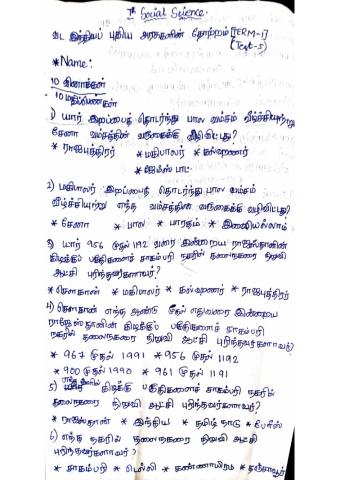 7th Social Science.
வட இந்தியப் புதிய அரசுகளின் தோற்றம் [TERM-1]
(Test-5)
* Name:
10 வினாக்கள்
10 மதிப்பெண்கள்
1) யார் இறப்பைத் தொடர்ந்து பால வம்சம் வீழ்ச்சியுற்று
சேனா வம்சத்தின் வருகைக்கு வழிவிட்டது?
* ராஜபுத்திரர் * மகிபாலர் * கல்ஹணர்
* ஜேம்ஸ் டாட்
2) மகிபாலர் இறப்பைத் தொடர்ந்து பால வம்சம்
வீழ்ச்சியுற்று எந்த வம்சத்தின் வருகைக்கு வழிவிட்டது?
* சேனா * பால * பாரதம் * இவையெல்லாம்
3) யார் 956 முதல் 1192 வரை இன்றைய ராஜஸ்தானின்
கிழக்குப் பகுதிகளைச் சாகம்பரி நகரில் தலைநகரை நிறுவி
ஆட்சி புரிந்தவர்களாவர்?
* சௌகான் * மகிபாலர் * கல்ஹணர் * ராஜபுத்திரர்
4) சௌகான் எந்த ஆண்டு முதல் எதுவரை இன்றைய
ராஜஸ்தானின் கிழக்குப் பகுதிகளைச் சாகம்பரி
நகரில் தலைநகரை நிறுவி ஆட்சி புரிந்தவர்களாவர்?
* 967 முதல் 1991 * 956 முதல் 1192
* 900 முதல் 1990 * 961 முதல் 1191
5) எந்த கிழக்குப் பகுதிகளைச் சாகம்பரி நகரில்
தலைநகரை நிறுவி ஆட்சி புரிந்தவர்களாவர்?
* ராஜஸ்தான் * இந்திய * தமிழ் நாடு *
6) எந்த நகரில் தலைநகரை நிறுவி ஆட்சி
புரிந்தவர்களாவர்?
* சாகம்பரி * டெல்லி * * தஞ்சாவூர்